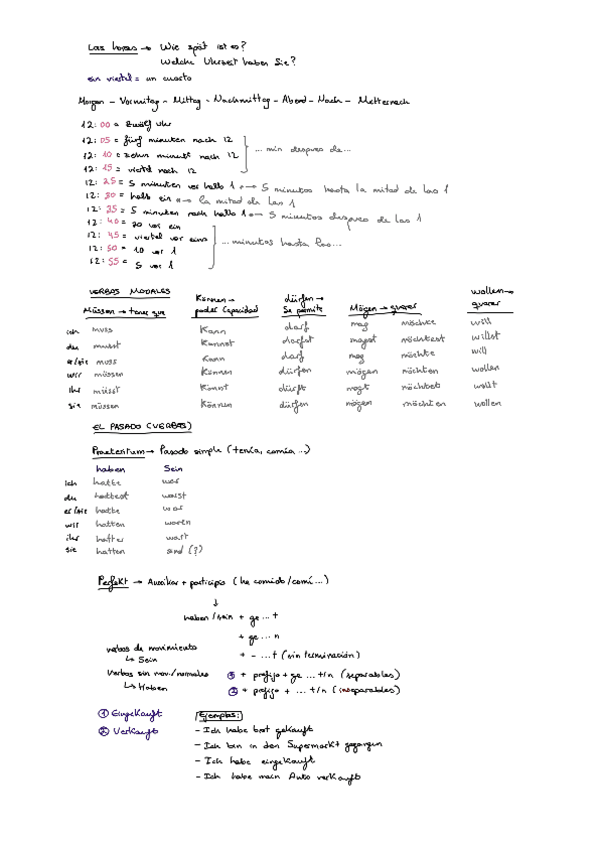 Las horas → Wie spät ist es?
Welche Uhrzeit haben Sie?
ein viertel = un cuarto
Morgen - Vormittag - Mittag - Nachmittag - Abend - Nach - Metternach
12:00 = zwölf Uhr
12:05 = fünf minuten nach 12
12:10 = zehn minut nach 12 ... min despues de...
12:15 = viertel nach 12
12:25 = 5 minuten vor halb 1 → 5 minutos hasta la mitad de las 1
12:30 = halb ein → la mitad de las 1
12:35 = 5 minuten nach halb 1 → 5 minutos despues de las 1
12:40 = 20 vor ein
12:45 = viertel vor eins ... minutos hasta las...
12:50 = 10 vor 1
12:55 = 5 vor 1
VERBOS MODALES
Müssen → tener que Können → poder Capacidad dürfen → Se permite Mögen → querer wollen → querer
ich muss Kann darf mag möchte will
du musst Kannst darfst magst möchtest willst
er/sie muss Kann darf mag möchte will
wir müssen Können dürfen mögen möchten wollen
ihr müsst Könnt dürft mögt möchtet wollt
sie müssen Können dürfen mögen möchten wollen
EL PASADO (VERBOS)
Praeteritum → Pasado simple (tenía, comía...)
haben Sein
ich hatte war
du hattest warst
er/sie hatte war
wir hatten waren
ihr hatter wart
sie hatten sind (?)
Perfekt → Auxiliar + participio (he comido/comí...)
↓
haben/sein + ge...t
+ ge...n
verbos de movimiento + -...t (sin terminación)
↳ Sein
Verbos sin mov./normales ① + prefijo + ge...t/n (separables)
↳ Haben ② + prefijo + ...t/n (inseparables)
① Eingekauft Ejemplos:
② Verkauft - Ich habe brot gekauft
- Ich bin in den Supermarkt gegangen
- Ich habe eingekauft
- Ich habe mein Auto verkauft